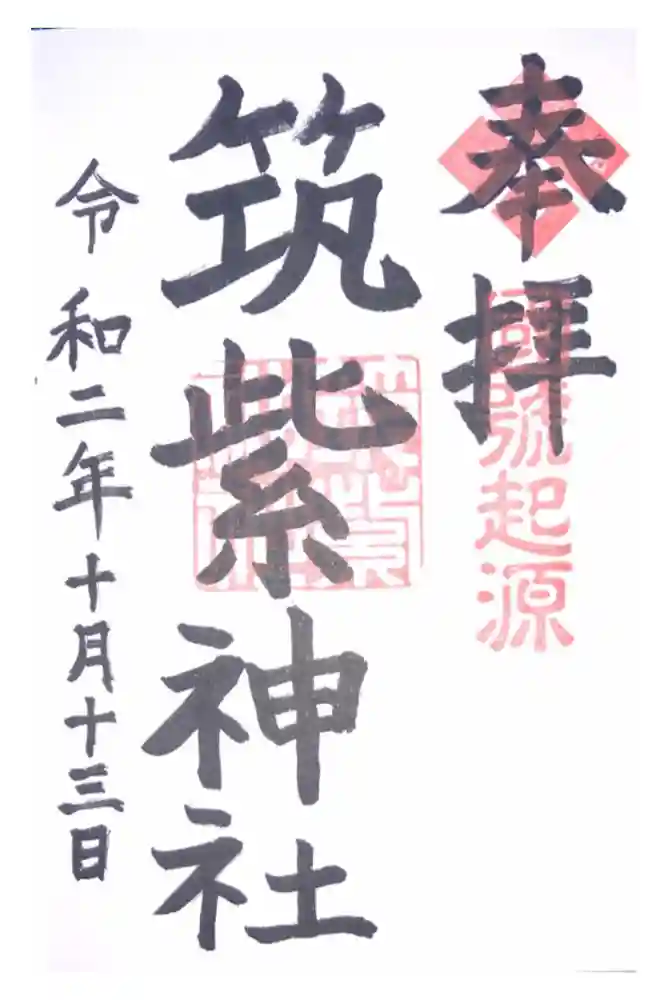 奉拝
國號起源
筑紫神社
令和二年十月十三日